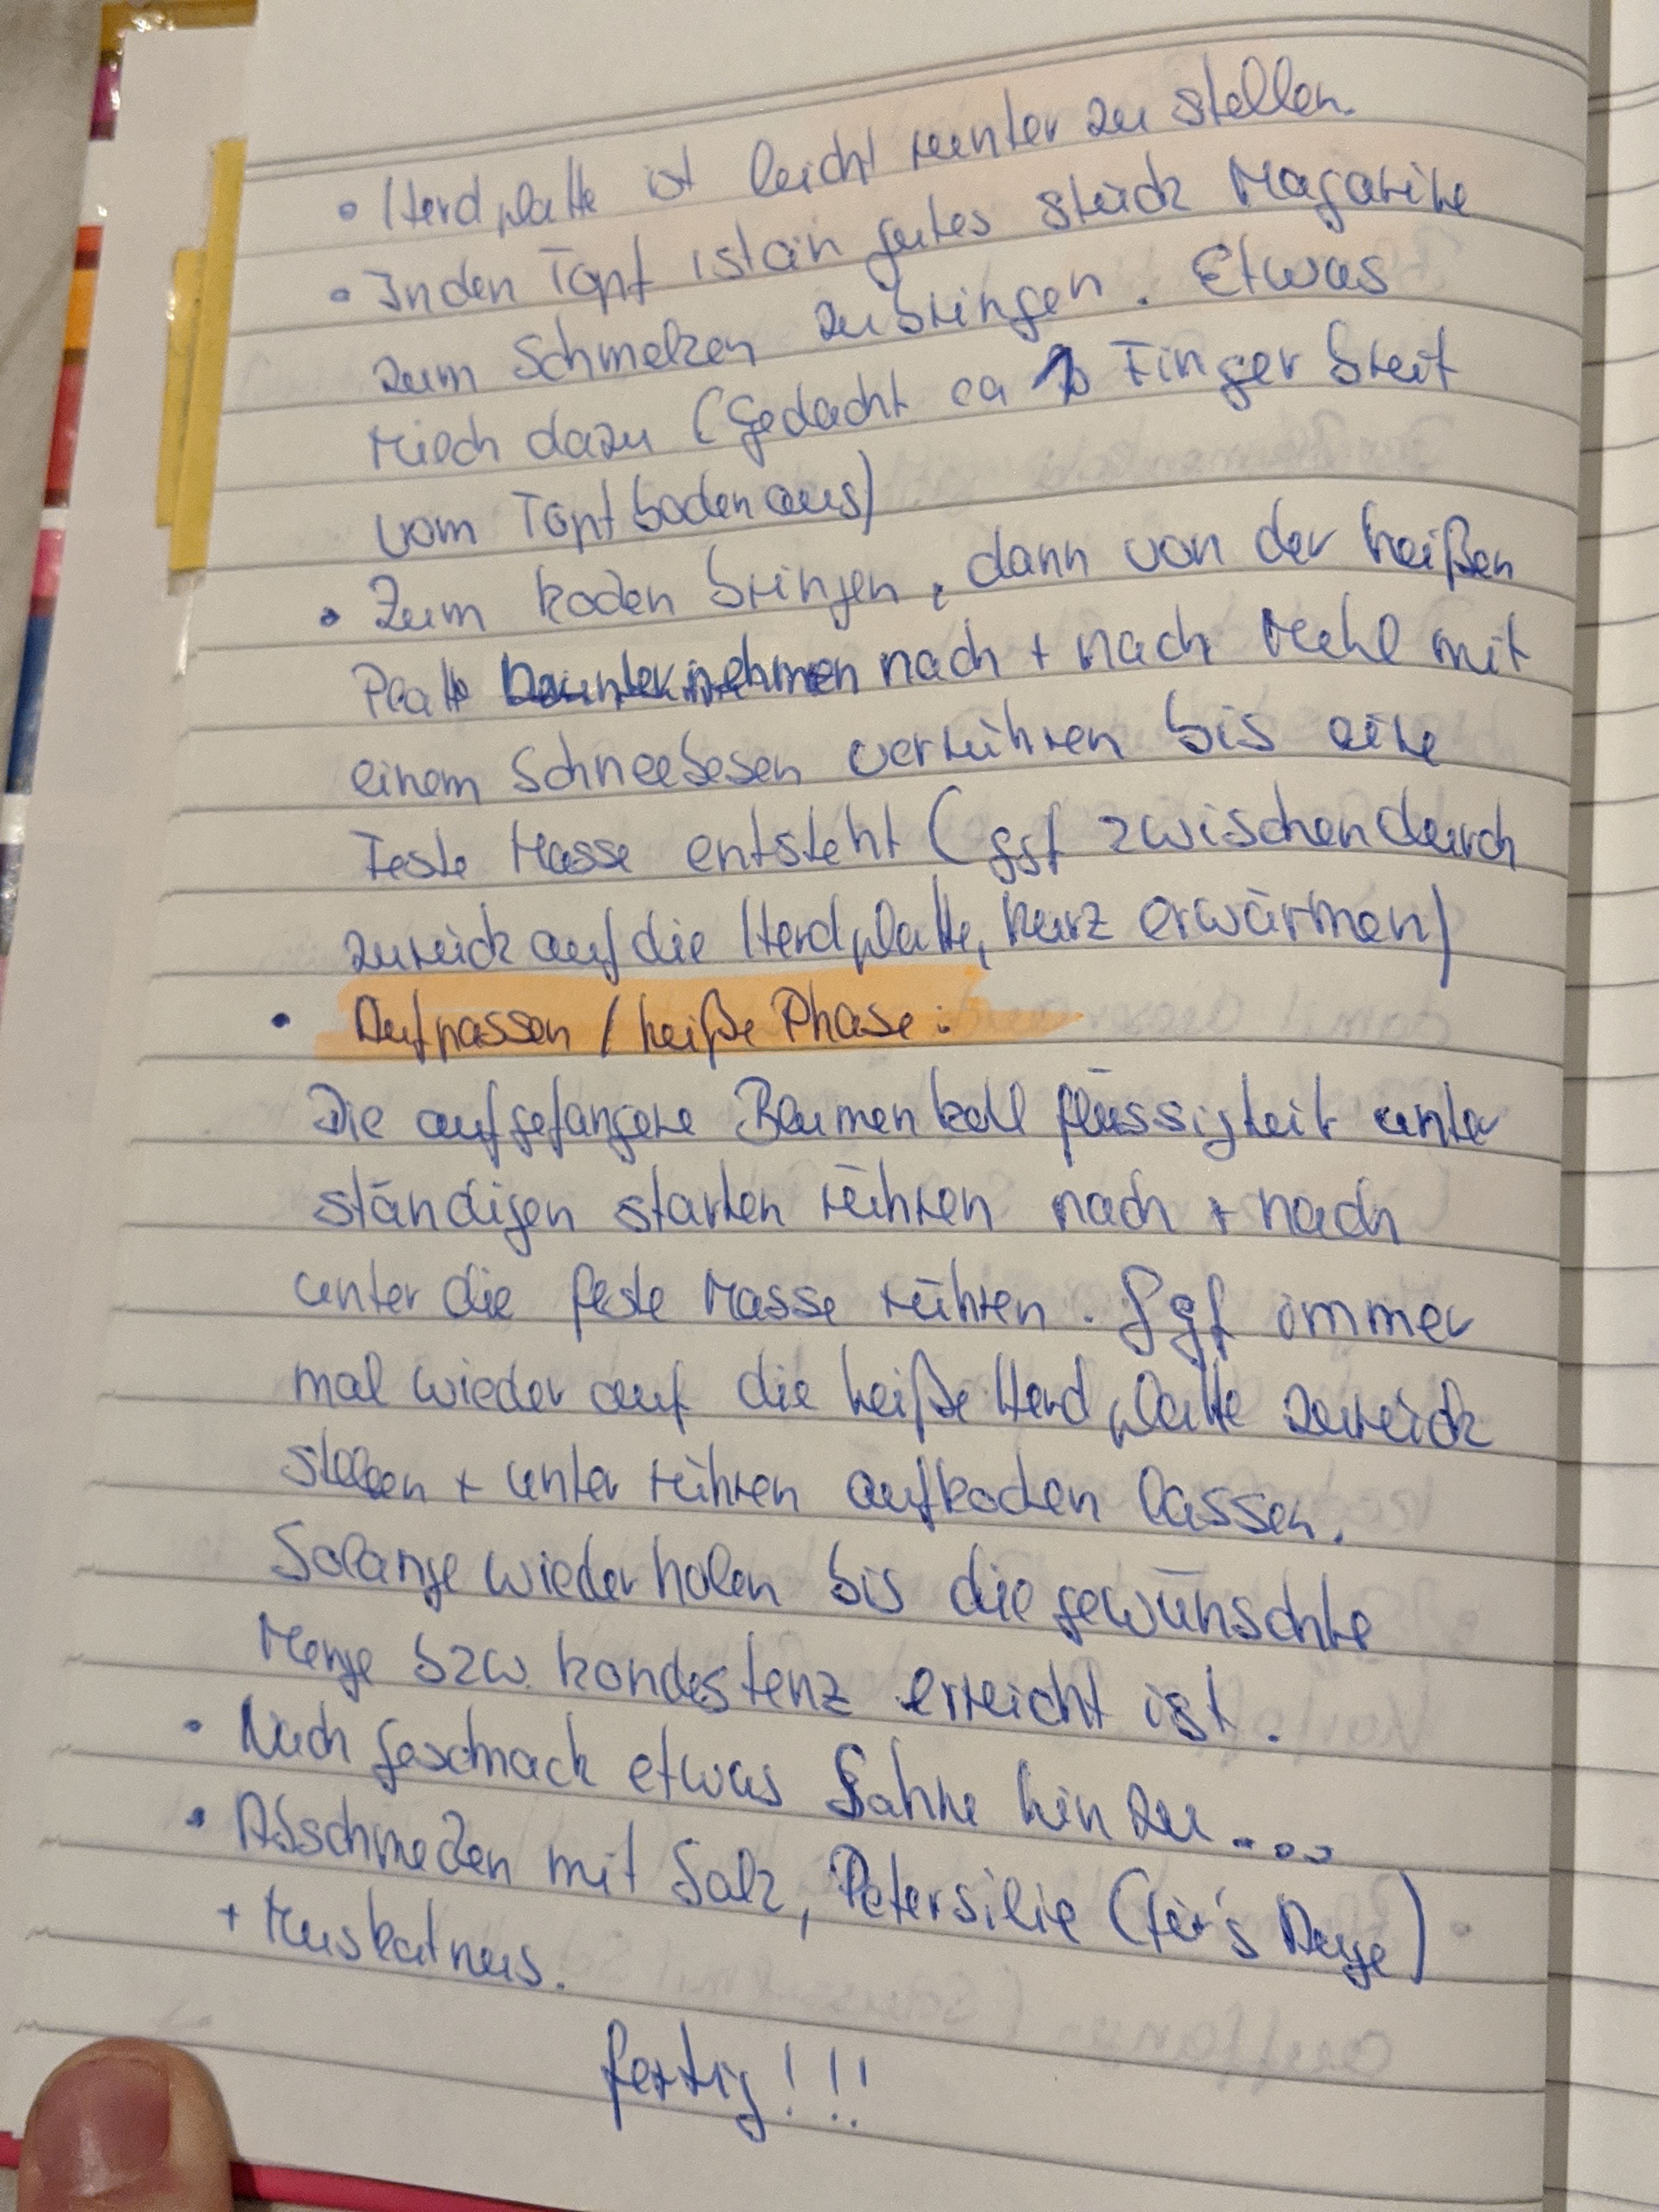 • Herdplatte ist leicht runter zu stellen.
• In den Topf ist ein gutes Stück Magarine
zum Schmelzen zu bringen. Etwas
Milch dazu (Gedacht ca Finger breit
vom Topfboden aus)
• Zum kochen bringen, dann von der heißen
Platte runternehmen nach + nach Mehl mit
einem Schneebesen verrühren bis eine
Feste Masse entsteht (ggf zwischendurch
zurück auf die Herdplatte, kurz erwärmen)
• Aufpassen / heiße Phase:
Die aufgefangene Blumenkohl flüssigkeit unter
ständigen starken rühren nach + nach
unter die feste Masse rühren. Ggf immer
mal wieder auf die heiße Herdplatte zurück
stellen + unter rühren aufkochen lassen.
Solange wiederholen bis die gewünschte
Menge bzw. kondestenz erreicht ist.
• Nach Geschmack etwas Sahne hinzu....
• Abschmecken mit Salz, Petersilie (für's Auge)
+ Muskatnus.
fertig!!!